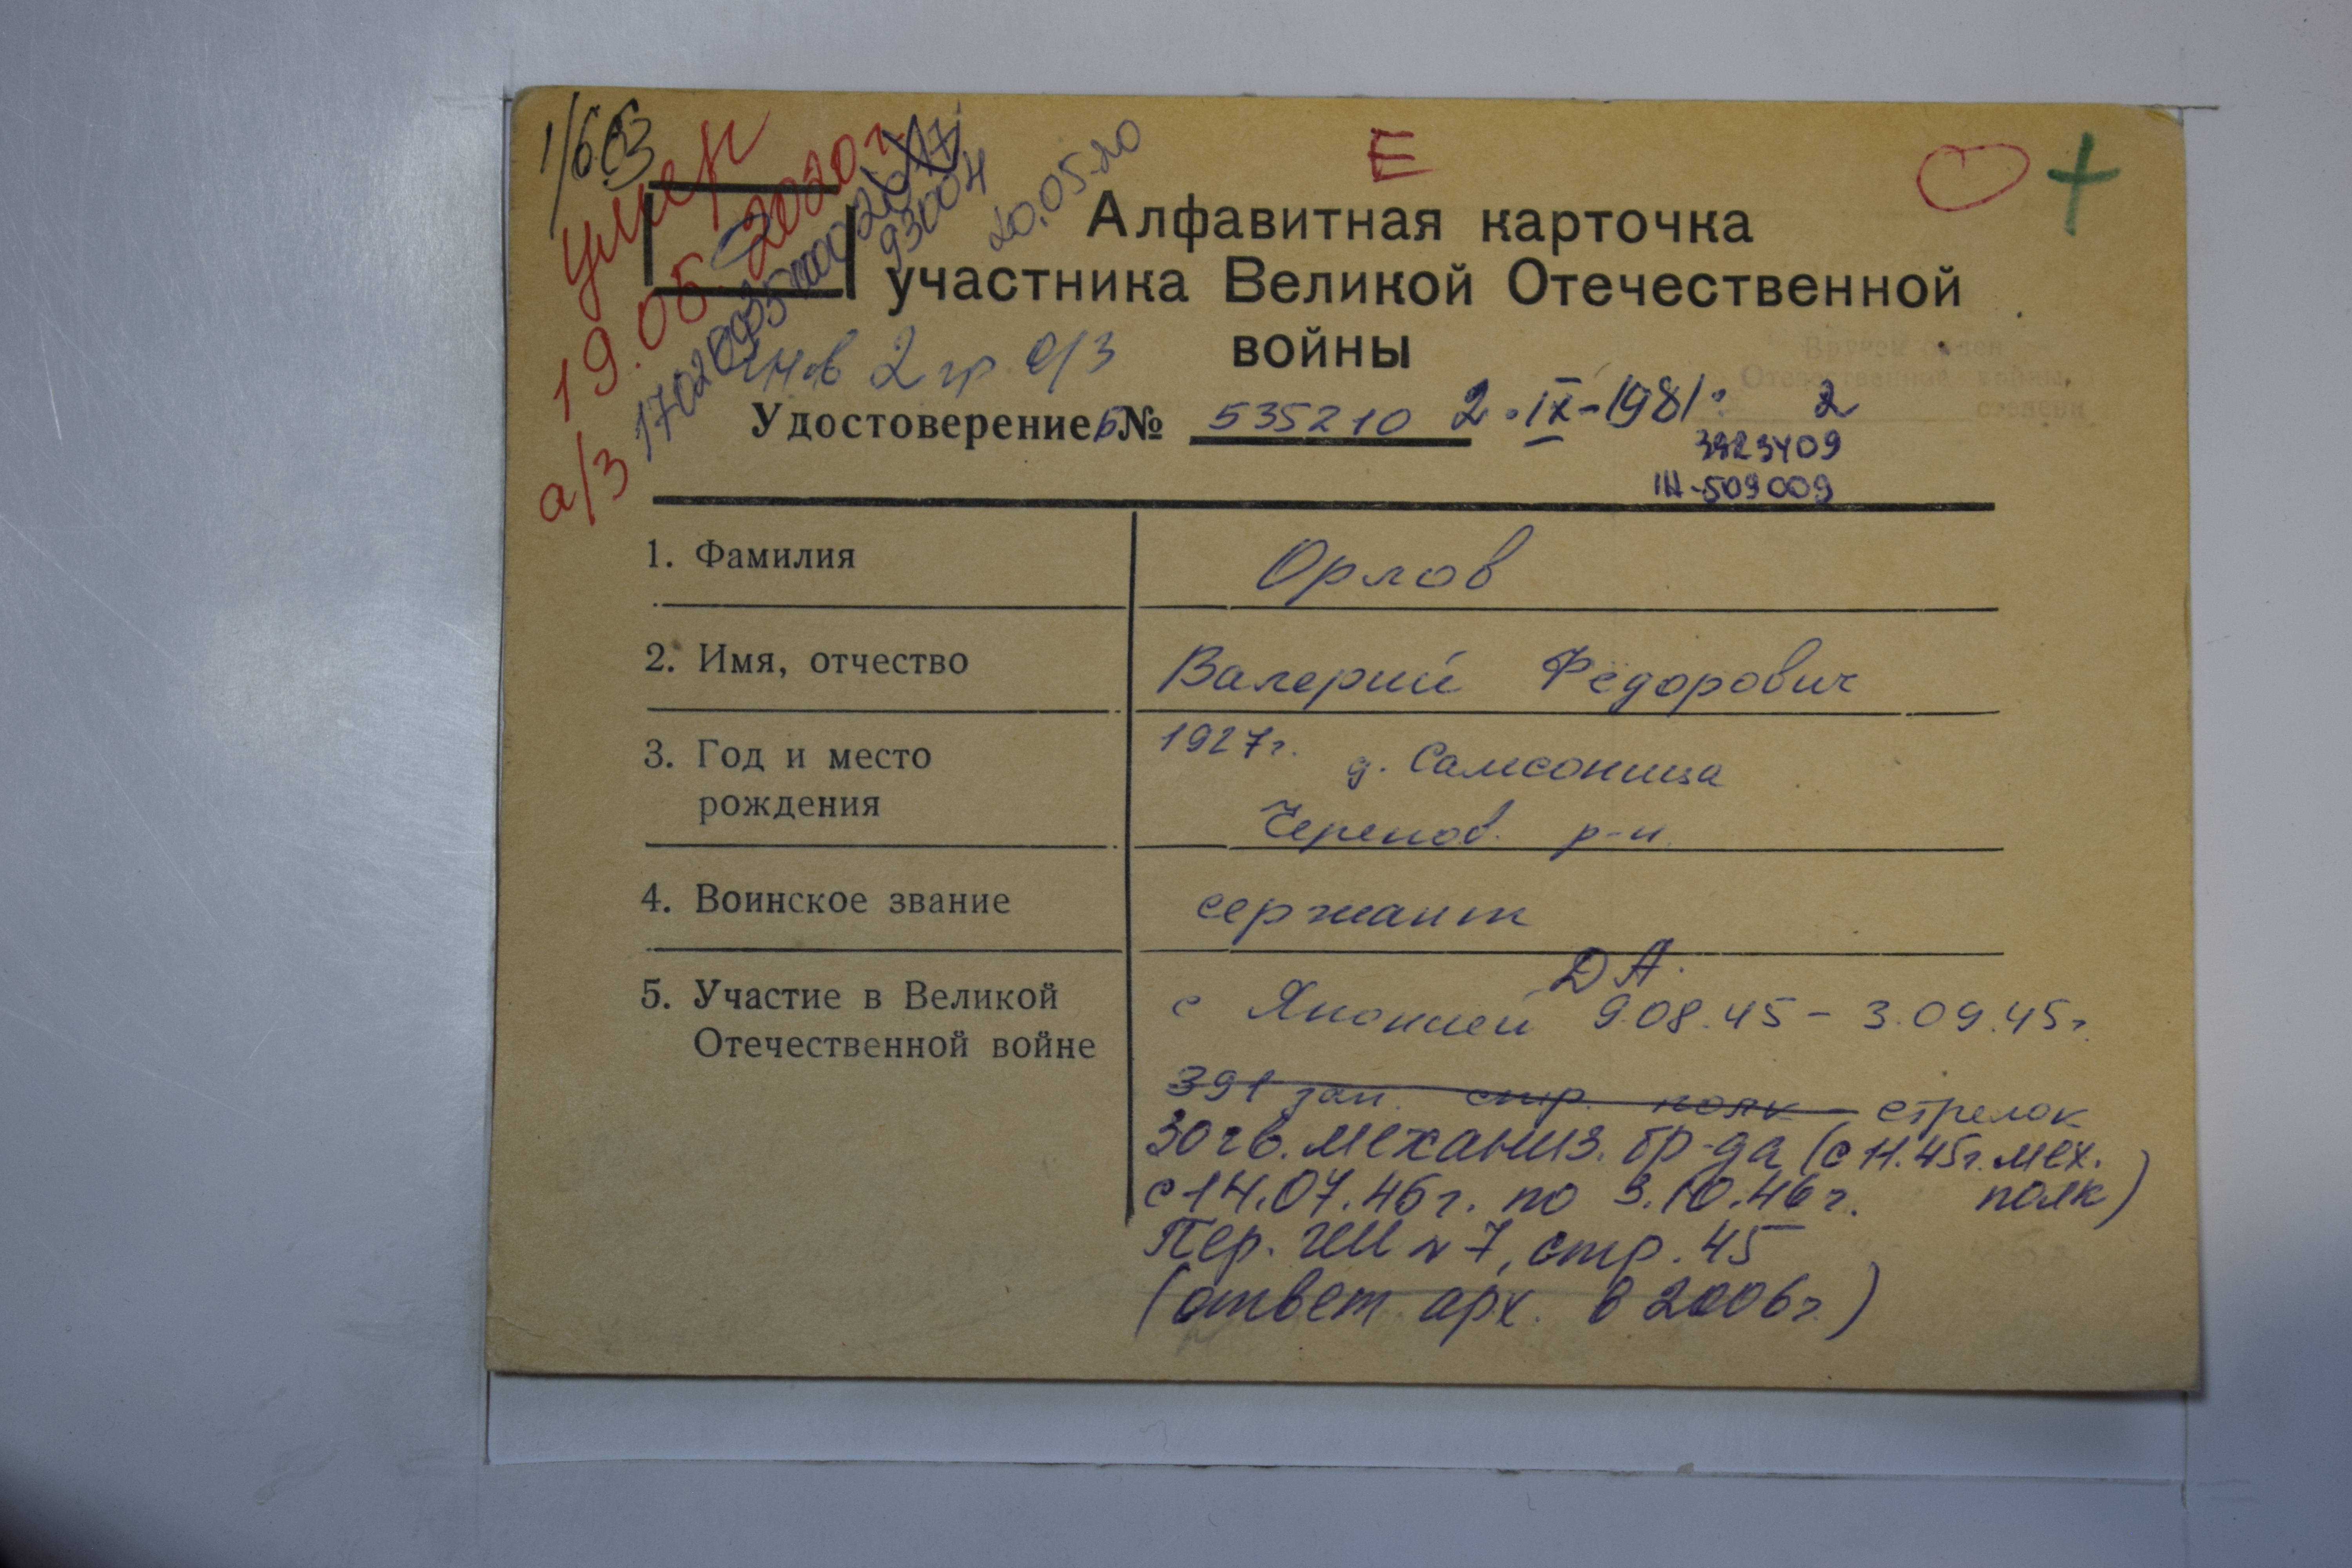 1/603
умер
19.05 2020г
а/з
20.05.20
93004
Е
Алфавитная карточка
участника Великой Отечественной
войны
инв 2 гр. о/з
Удостоверение Б № 535210 2.IX-1981г. 2
3923409
IН-509009
1. Фамилия
Орлов
2. Имя, отчество
Валерий Фёдорович
3. Год и место
рождения
1927г. д. Самсоница
Черепов. р-н
4. Воинское звание
сержант
5. Участие в Великой
Отечественной войне
ДА.
с Японией 9.08.45 – 3.09.45г.
391 зап. стр. полк – стрелок
30 гв. механиз. бр-да (с 11.45г. мех.
полк)
с 14.07.46г. по 3.10.46г.
Пер. ГШ № 7, стр. 45
(ответ арх. в 2006г.)